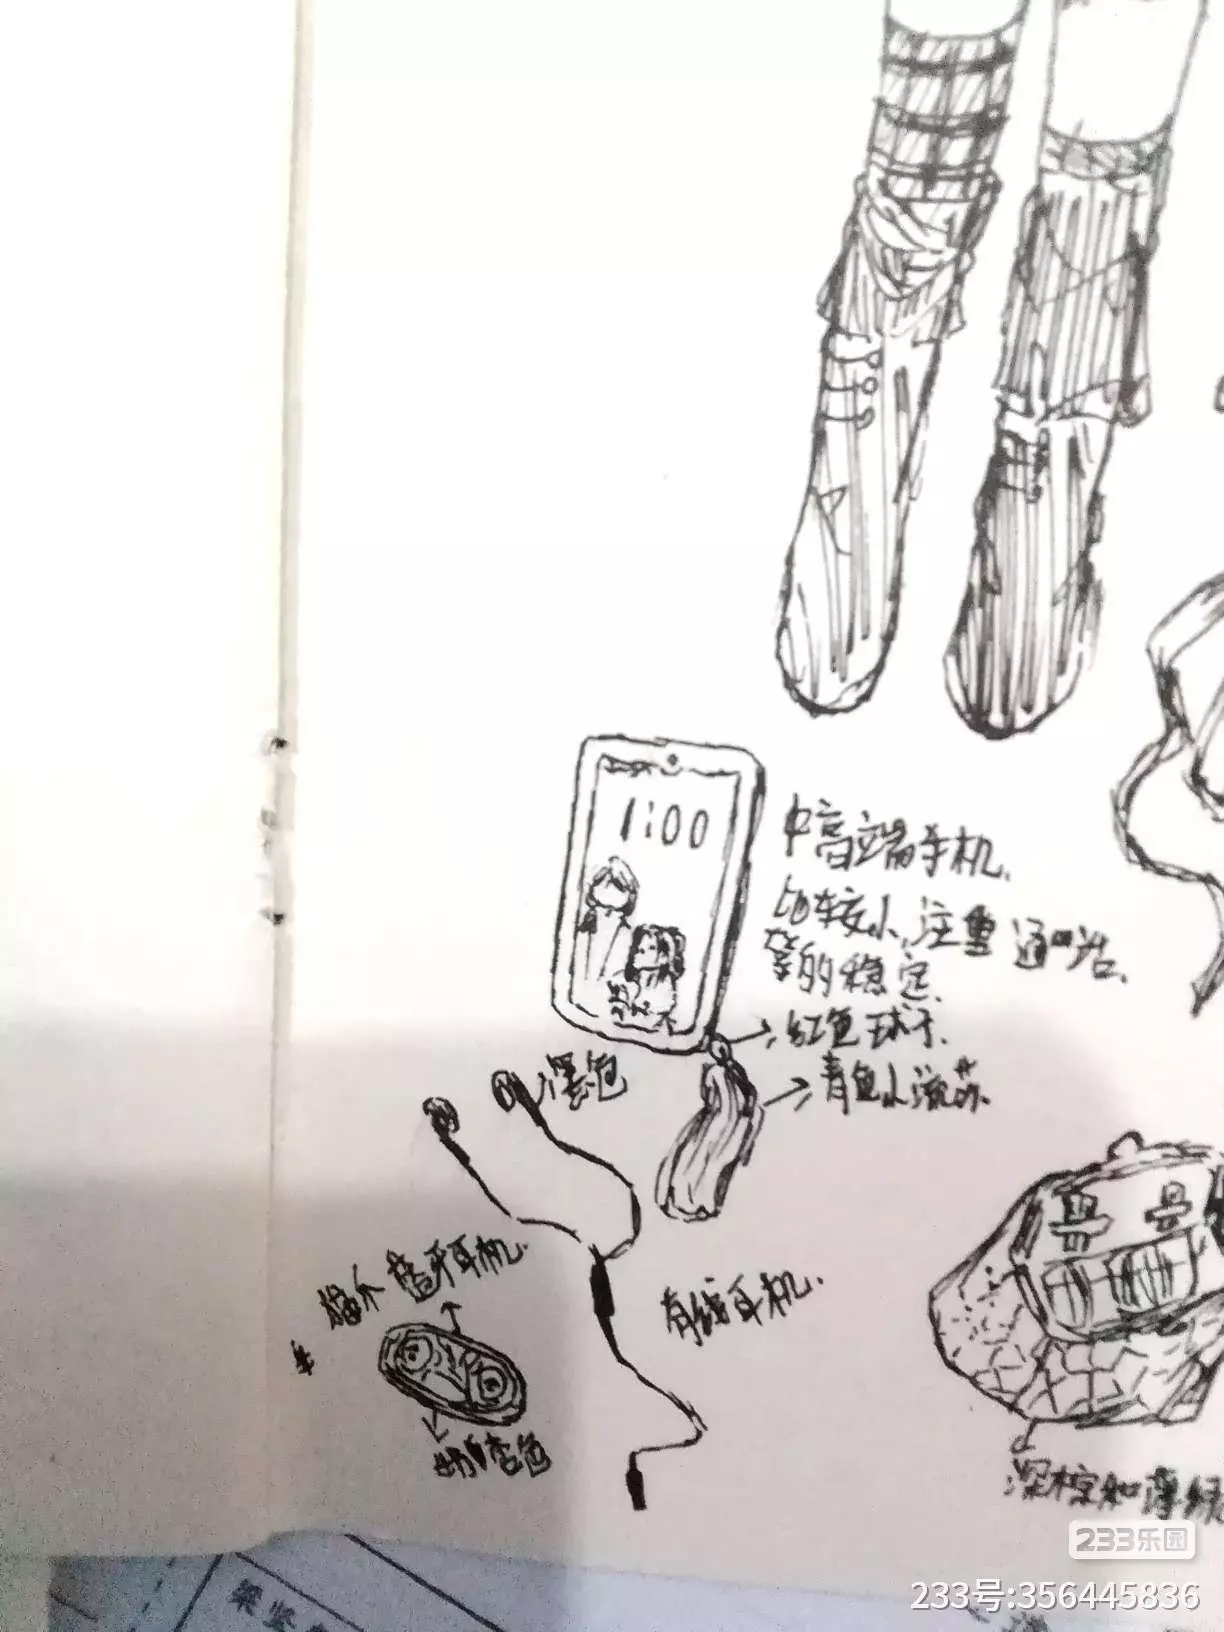 1:00
中高端手机.
比较小,注重通话、
等的稳定.
红色球子.
青色小流苏.
黑色
蓝牙耳机.
有线耳机.
奶杏色
深棕和薄绿
233乐园
233号:356445836